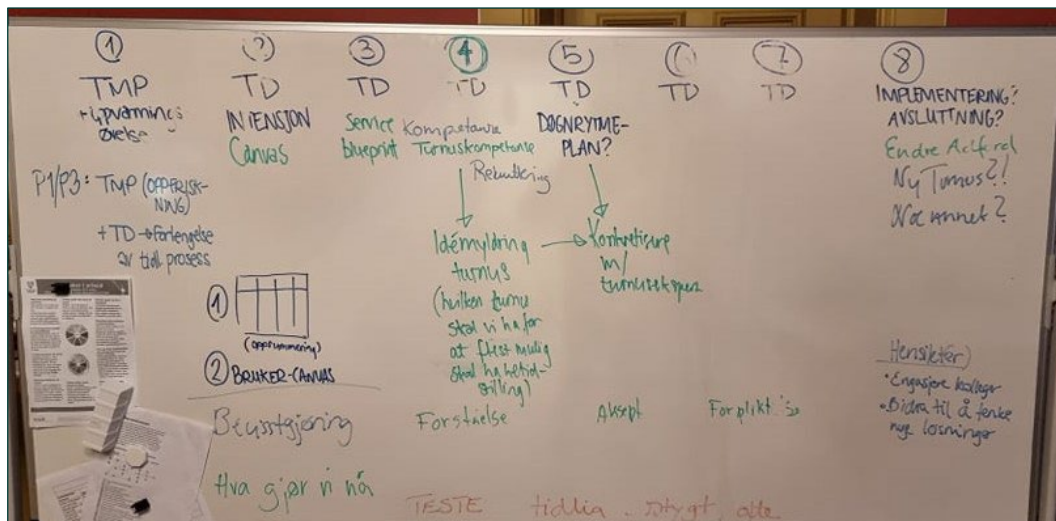 ① ② ③ ④ ⑤ ⑥ ⑦ ⑧
TMP
+ Oppvarmings
øvelse
P1/P3: TMP (OPPFRISK-
NING)
+ TD → Forlengelse
av tidl prosess
TD
INTENSJON
Canvas
①
(oppsummering)
② BRUKER-CANVAS
TD
Service
blueprint
TD
Kompetanse
Turnuskompetanse
Rekruttering
Idémyldring
turnus
(hvilken turnus
skal vi ha for
at flest mulig
skal ha heltid-
stilling)
TD
DØGNRYTME-
PLAN?
Konkretisere
m/
TD
TD
IMPLEMENTERING?
AVSLUTTNING?
Endre Adferd
Ny Turnus?!
Noe annet?
Hensikt(er)
• Engasjere kolleger
• Bidra til å tenke
nye løsninger
Bevisstgjøring
Forståelse
Aksept
Forplikt
Hva gjør vi nå
TESTE tidlig stygt, ofte